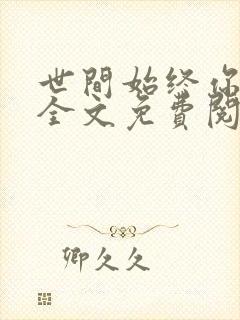 世間始终你
全文免費閱
卿久久